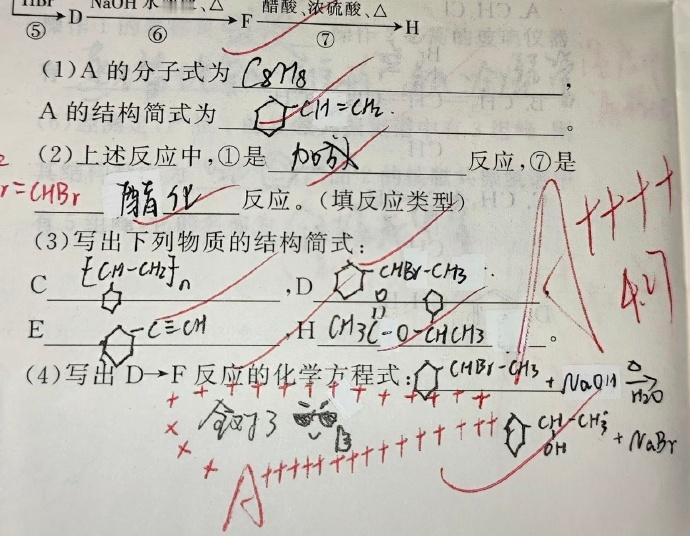 HBr ⑤ D NaOH水溶液、△ ⑥ F 醋酸、浓硫酸、△ ⑦ H
(1)A 的分子式为 C8H8,
A 的结构简式为 -CH=CH2。
(2)上述反应中,①是 加成 反应,⑦是
r=CHBr
酯化 反应。(填反应类型)
(3)写出下列物质的结构简式:
C [CH-CH2]n ,D -CHBr-CH3
E -C≡CH ,H CH3C(=O)-O-CHCH3 。
(4)写出 D→F 反应的化学方程式: CHBr-CH3 + NaOH △ H2O
CH-CH3 OH + NaBr
全对了
A++++++++++++++
A++++
4.27